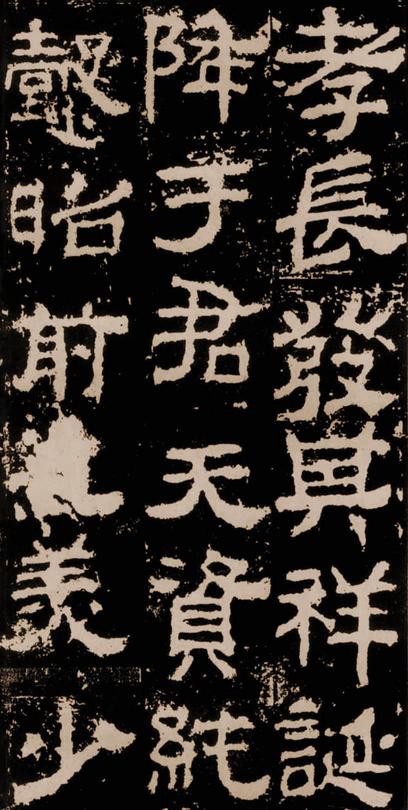 孝長發其祥誕
降于君天資純
懿昭前美少